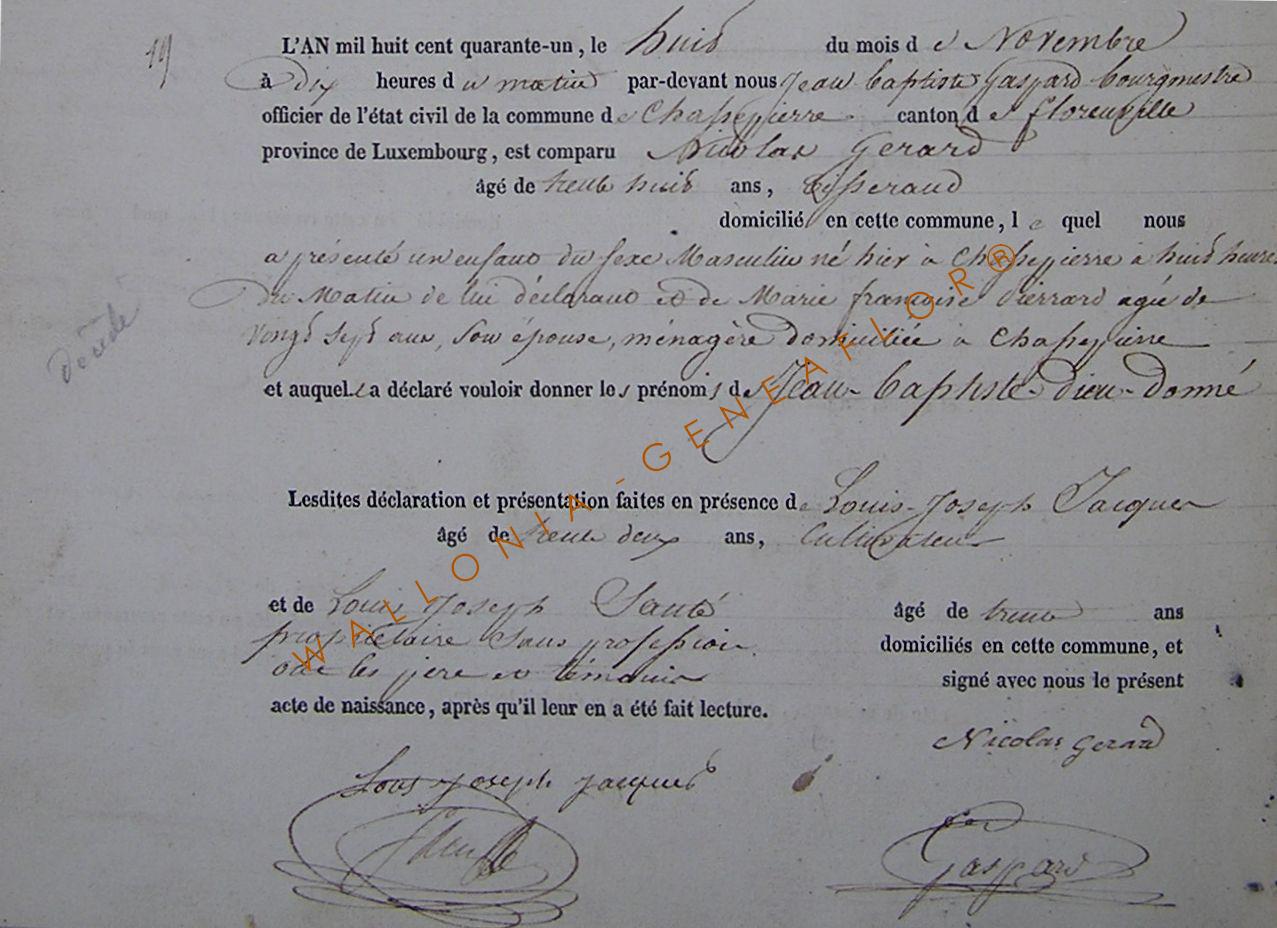 19
L'AN mil huit cent quarante-un, le huit du mois de Novembre
à dix heures du matin par-devant nous Jean baptiste Gaspard bourgmestre
officier de l'état civil de la commune de Chassepierre canton de florenville
province de Luxembourg, est comparu Nicolas Gerard
âgé de trente huit ans, tisserand
domicilié en cette commune, le quel nous
a présenté un enfant du sexe Masculin né hier à Chassepierre à huit heures
Du Matin de lui déclarant et de Marie françoise Pierrard agée de
Vingt sept ans, son épouse, ménagère domiciliée à Chassepierre
décédé
et auquel il a déclaré vouloir donner les prénoms de Jean-baptiste-dieu-donné
Lesdites déclaration et présentation faites en présence de Louis-Joseph Jacques
âgé de trente deux ans, Cultivateur
et de Louis Joseph Santé âgé de trente ans
propriétaire sans profession domiciliés en cette commune, et
les père et témoins signé avec nous le présent
acte de naissance, après qu'il leur en a été fait lecture.
Nicolas Gerard
Louis Joseph Jacques
Gaspard
WALLONIA-GENEAFLOR®